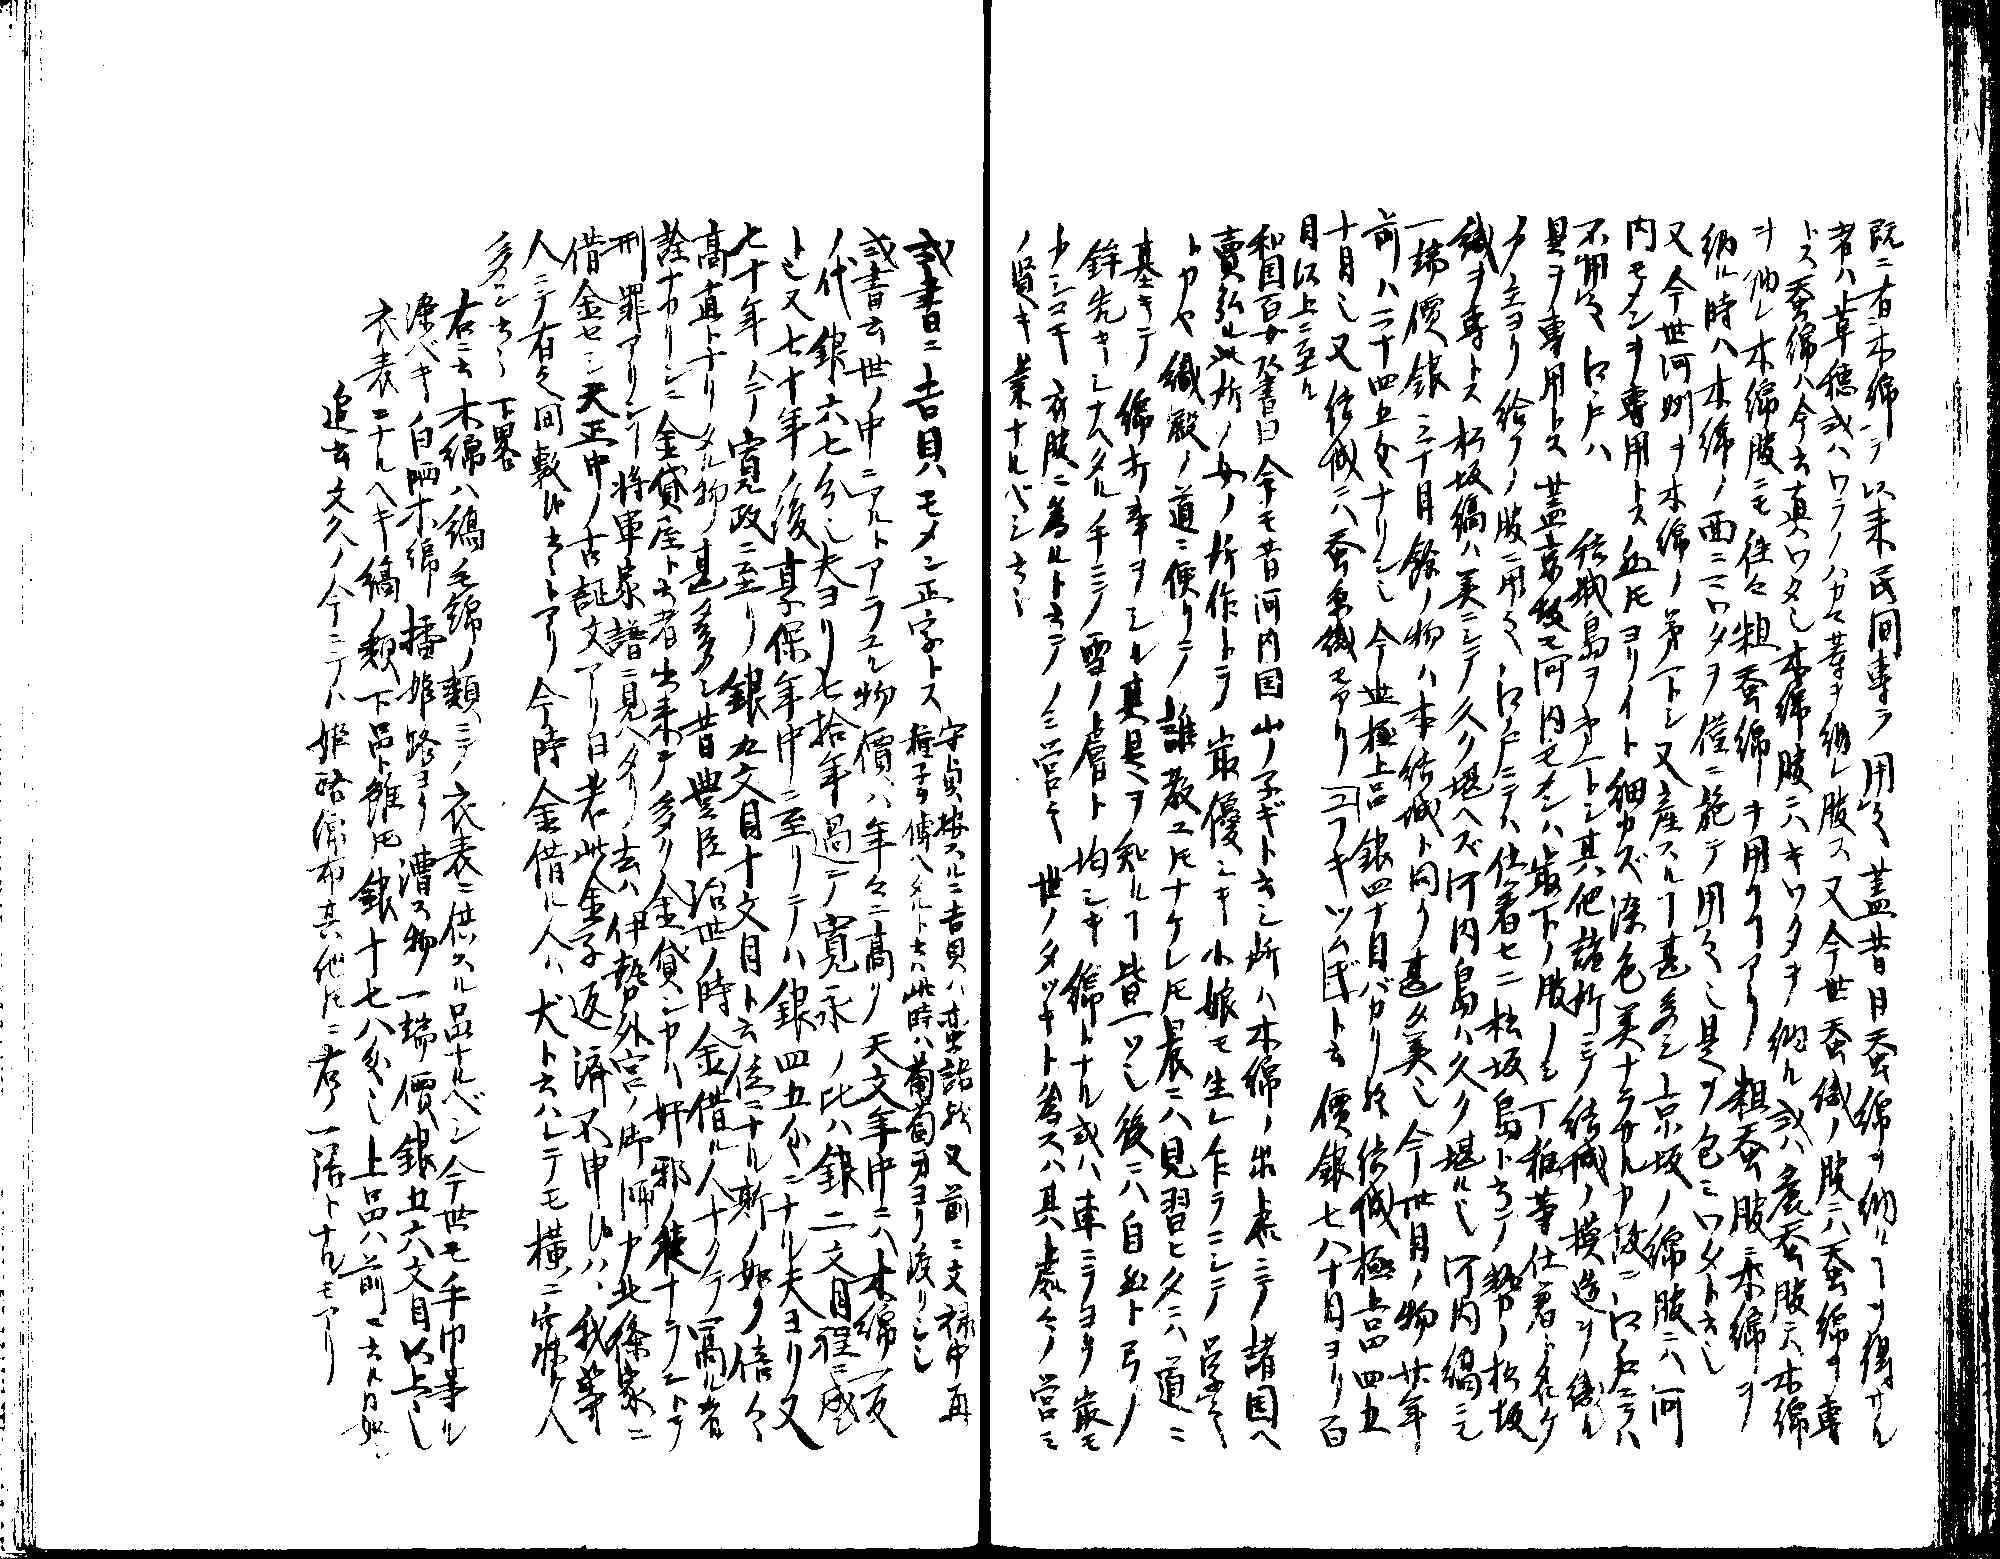 既ニ有木綿テ以来民間専ラ用之蓋昔日蚕綿ヲ納ルヿヲ得ザル
者ハ草穂或ハワラノハカマ等ヲ納レ服ス又今世蚕織ノ服ニハ蚕綿ヲ専
トス蚕綿ハ今云真ワタ也木綿服ニハキワタヲ納ル或ハ麁蚕服ニ木綿
ヲ納レ木綿服ニモ往々粗蚕綿ヲ用フヿアリ粗蚕服ニ木綿ヲ
納ル時ハ木綿ノ両ニマワタヲ僅ニ施テ用之是ヲ包ミワタト云也
又今世河州ヲ木綿ノ第一トシ又産スルヿ甚多シ京坂ノ綿服ニハ河
内モメンヲ専用トス然モヨリイト細カズ染色美ナラザル故ニ江戸ニテハ
不用之江戸ハ 結城島ヲ第一トシ其他諸所ニテ結城ノ模造ヲ織ル
是ヲ専用トス蓋京坂モ河内モメンハ最下ノ服ノミ丁稚等仕着ト名ケ
テ主ヨリ給フノ服ニ用之江戸ニテハ仕着セニ松坂島ト云テ勢州松坂
織ヲ専トス松坂縞ハ美ニシテ久ク堪ヘズ河内島ハ久ク堪ル也河内縞ニモ
一端價銀三十目餘ノ物ハ本結城ト同ク甚タ美也今世目ノ物廿年
前ハ二十四五匁ナリシ也今世極上品銀四十目バカリ也結城極上品四五
十目也又結城ニハ蚕糸織モアリフキツムギト云價銀七八十目ヨリ百
目以上ニ至ル
和国百女ノ書曰今モ昔河内国山ノ子ギト云シ所ハ木綿ノ出ル處ニテ諸国ヘ
賣弘ル此所ノ女ノ所作トテ最優シキ小娘モ生レ乍ラニシテ学之
トカヤ織殿ノ道ニ便リテ誰教ユルモナケレ𪜈晨ニハ見習ヒ夕ニハ道ニ
基キテ綿ホ事ヲシル真是ヲ知ルヿ皆一ツ也後ニハ自然ト弓ノ
鉾先キシナヘタル手ニテ雪ノ膚ト均シキ綿トナル或ハ車ニテヨキ最モ
少シモ衣服ニ為ルト云テノミ営モ世ノタツキト為スハ其上處々ノ営ミ
ノ賢キ業ナルベシ云々
或書ニ吉貝モメン正字トス 守貞按スルニ吉貝ハ梵語歟又前ニ文禄中再
種子ヲ傳ヘタルト云ハ此時ハ葡萄牙ヨリ渡リシ也
或書云世ノ中ニアルトアラユル物價ハ年々ニ高リ天文年中ニハ木綿一反
ノ代銀六七分也夫ヨリ七拾年過テ寛永ノ比ハ銀二文目程ニ成
ト也又七十年ノ後享保年中ニ至リテハ銀四五匁ニナリ夫ヨリ又
七十年ヘテ寛政ニ至リ銀九文目十文目ト云位ニナル斯ノ如ク倍々
高直トナリタル物ノ甚多シ昔豊臣治世ノ時金借ル人ナクテ冨ル者
詮ナカリシニ金貸屋ト云者出来テ多ク金貸シカバ奸邪ノ業ナランドテ
刑罪アリシヿ将軍家譜ニ見ヘタリ去ハ伊勢外宮ノ御師北條家ニ
借金セシ天正中ノ古証文アリ曰若此金子返済不申候ハヽ我等
人ニテ有之間敷候云々トアリ今時金借ル人ハ犬ト云ハレテモ横ニ出ル人
多シ云々 下畧
右ニ云木綿ハ縞毛綿ノ類ニテ衣表ニ供スル品ナルベシ今世モ手巾等ル
染ベキ白晒木綿播姫路ヨリ漕ス物一端價銀五六文目以上也
衣表ニナルヘキ縞ノ類下品ト雖𪜈銀十七八匁也上品ハ前ニ云ルカ如シ
追云文久ノ今ニテハ姫路綿布其他𪜈ニ右ノ一倍トナルモアリ